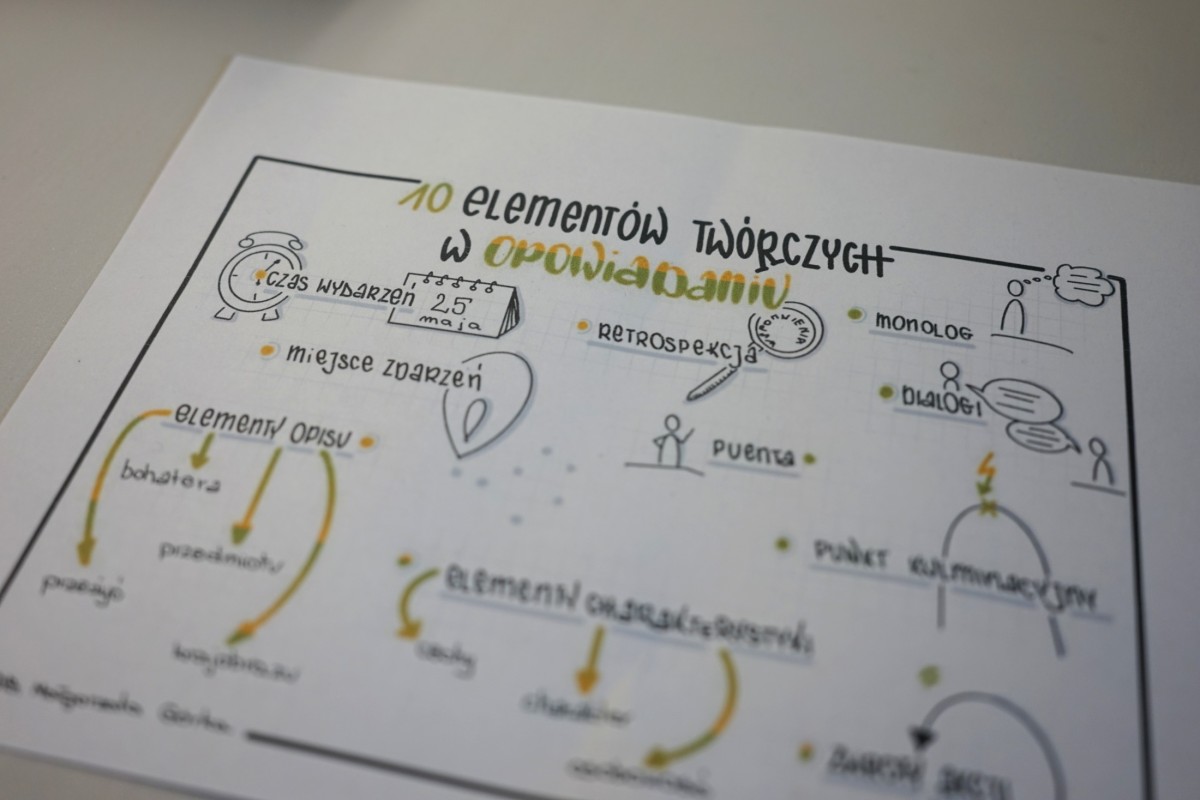 10 elementów twórczych
w opowiadaniu
czas wydarzeń
25
maja
miejsce zdarzeń
retrospekcja
wspomnienia
monolog
dialogi
puenta
elementy opisu
bohatera
przedmiotu
przeżyć
krajobrazu
punkt kulminacyjny
elementy charakterystyki
cechy
charakter
zwroty akcji
Małgorzata